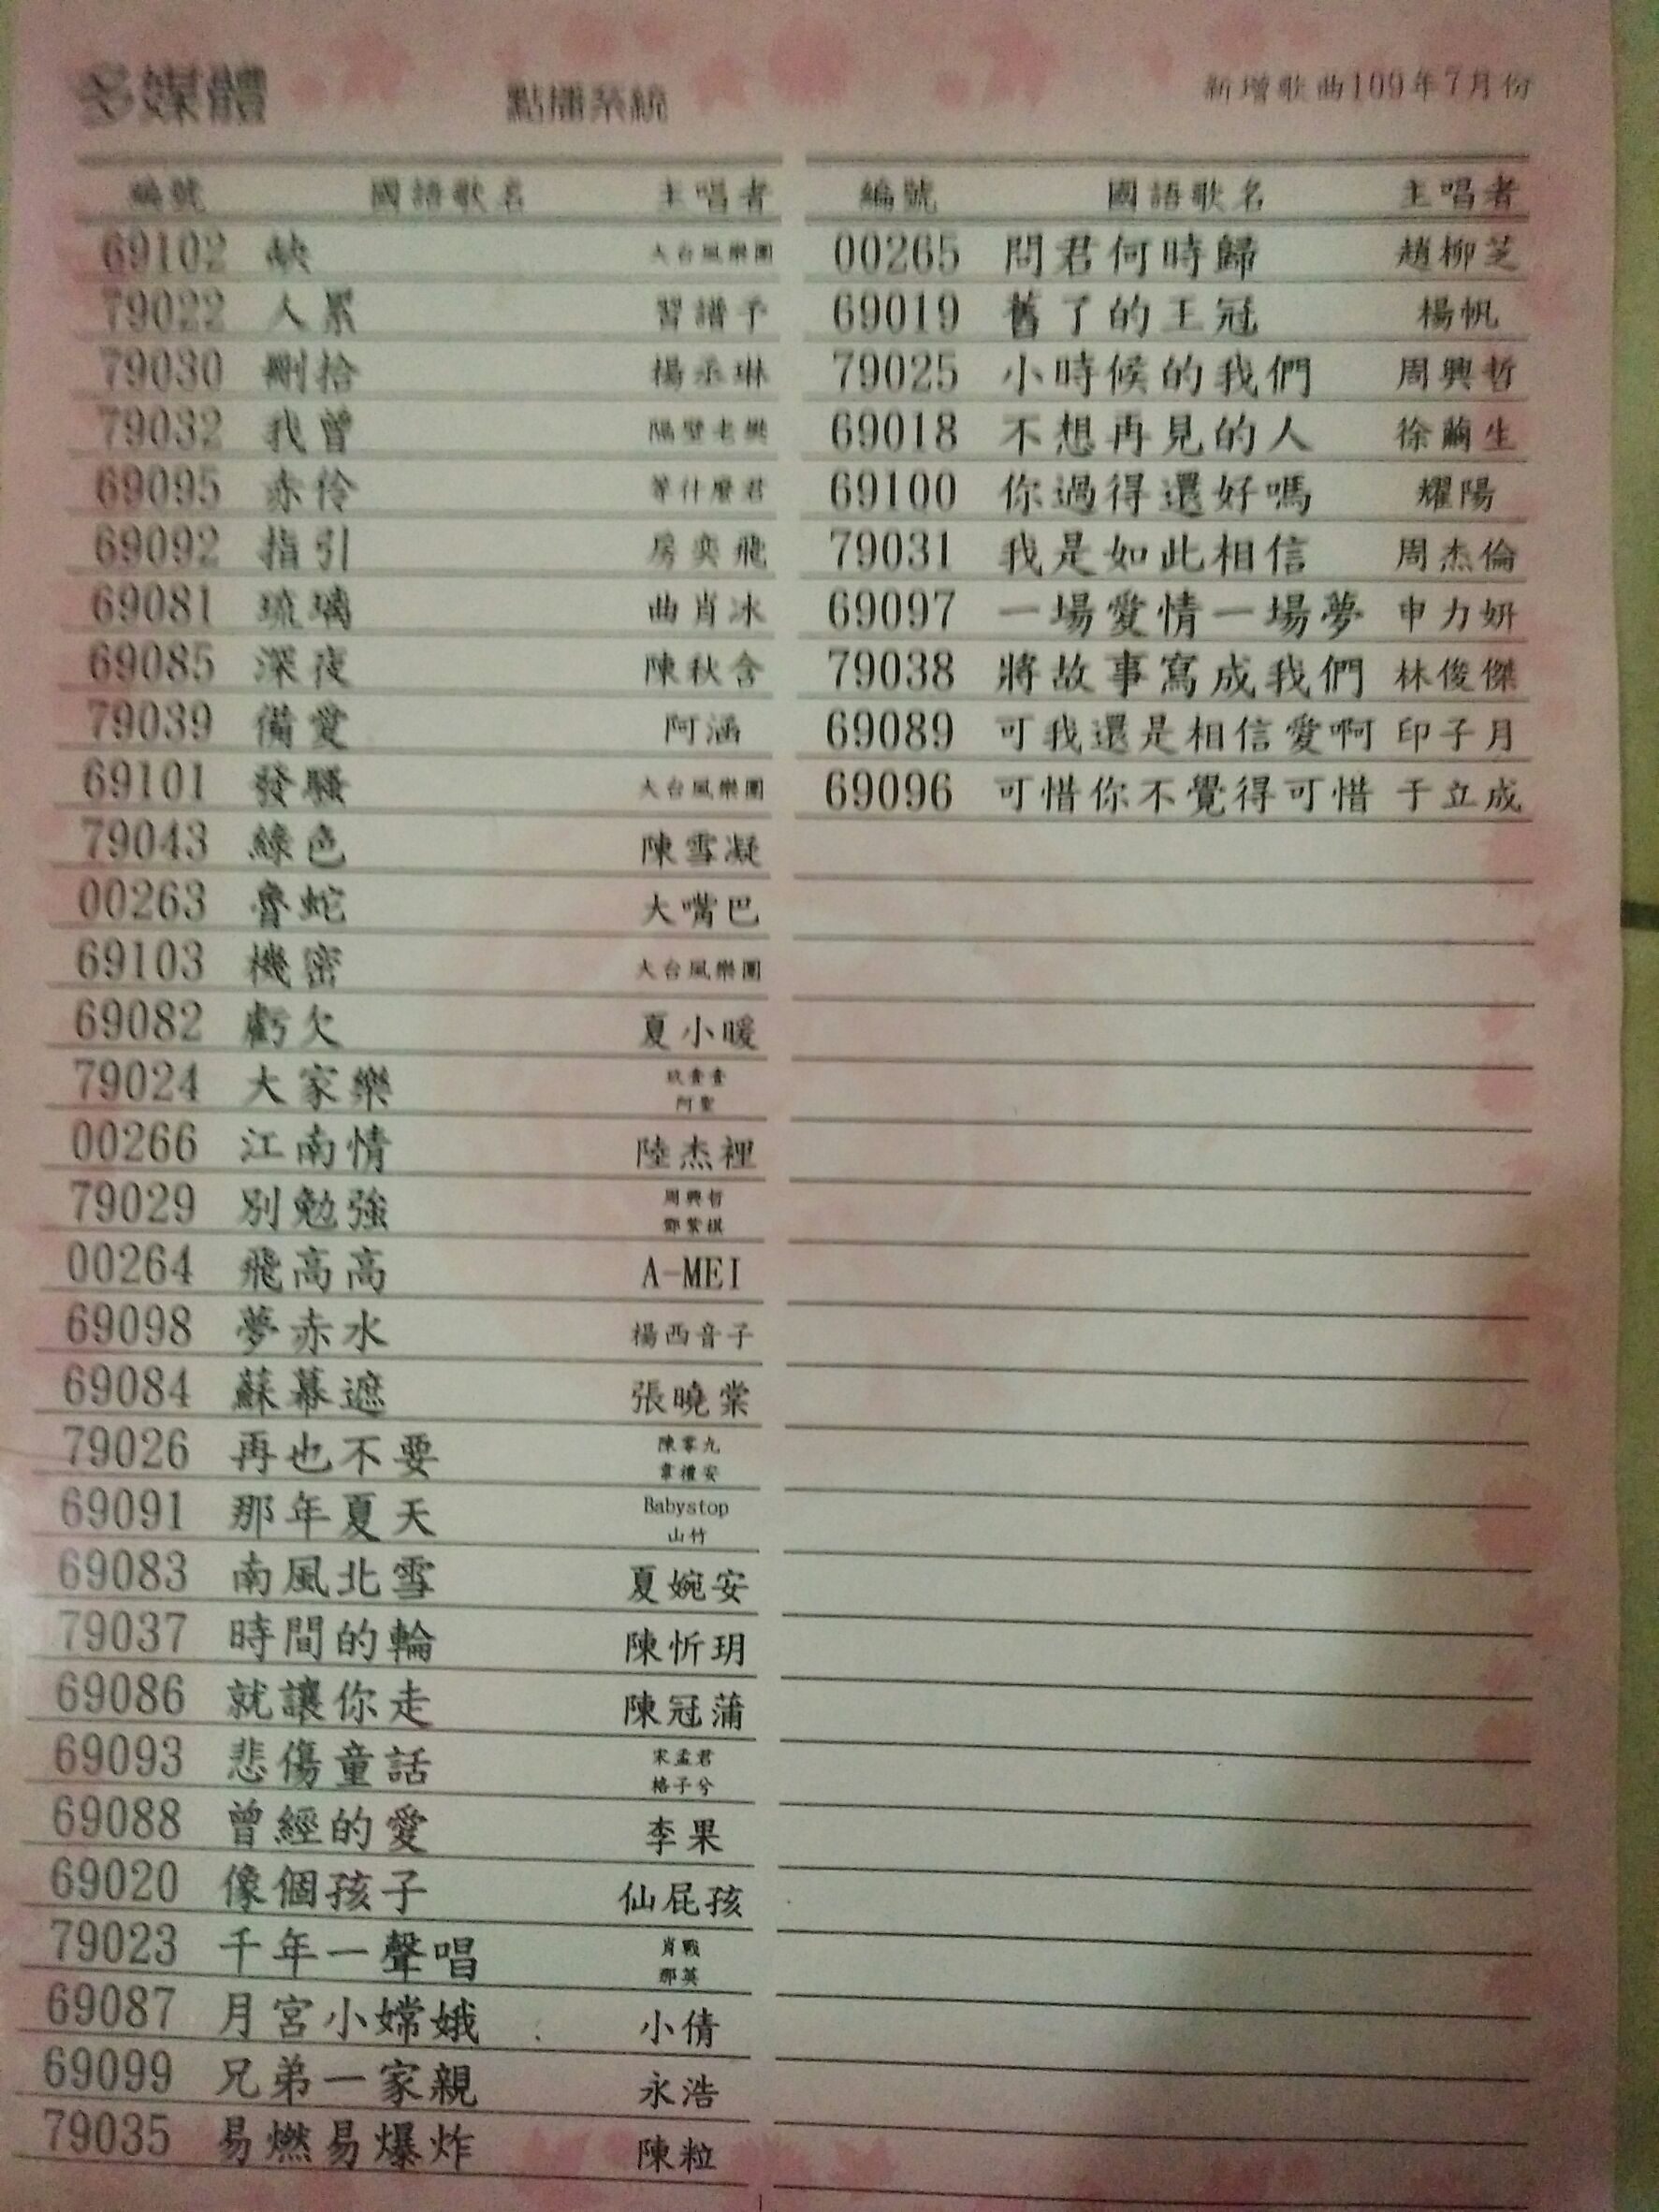 多媒體 點播系統 新增歌曲109年7月份
編號 國語歌名 主唱者
69102 缺 大台風樂團
79022 人累 習譜予
79030 刪拾 楊丞琳
79032 我曾 隔壁老樊
69095 赤伶 等什麼君
69092 指引 房奕飛
69081 琉璃 曲肖冰
69085 深夜 陳秋含
79039 備愛 阿涵
69101 發騷 大台風樂團
79043 綠色 陳雪凝
00263 魯蛇 大嘴巴
69103 機密 大台風樂團
69082 虧欠 夏小暖
79024 大家樂 玖壹壹
阿聖
00266 江南情 陸杰裡
79029 別勉強 周興哲
鄧紫棋
00264 飛高高 A-MEI
69098 夢赤水 楊西音子
69084 蘇幕遮 張曉棠
79026 再也不要 陳零九
韋禮安
69091 那年夏天 Babystop
山竹
69083 南風北雪 夏婉安
79037 時間的輪 陳忻玥
69086 就讓你走 陳冠蒲
69093 悲傷童話 宋孟君
格子兮
69088 曾經的愛 李果
69020 像個孩子 仙屁孩
79023 千年一聲唱 肖戰
那英
69087 月宮小嫦娥 小倩
69099 兄弟一家親 永浩
79035 易燃易爆炸 陳粒
編號 國語歌名 主唱者
00265 問君何時歸 趙柳芝
69019 舊了的王冠 楊帆
79025 小時候的我們 周興哲
69018 不想再見的人 徐繭生
69100 你過得還好嗎 耀陽
79031 我是如此相信 周杰倫
69097 一場愛情一場夢 申力妍
79038 將故事寫成我們 林俊傑
69089 可我還是相信愛啊 印子月
69096 可惜你不覺得可惜 于立成